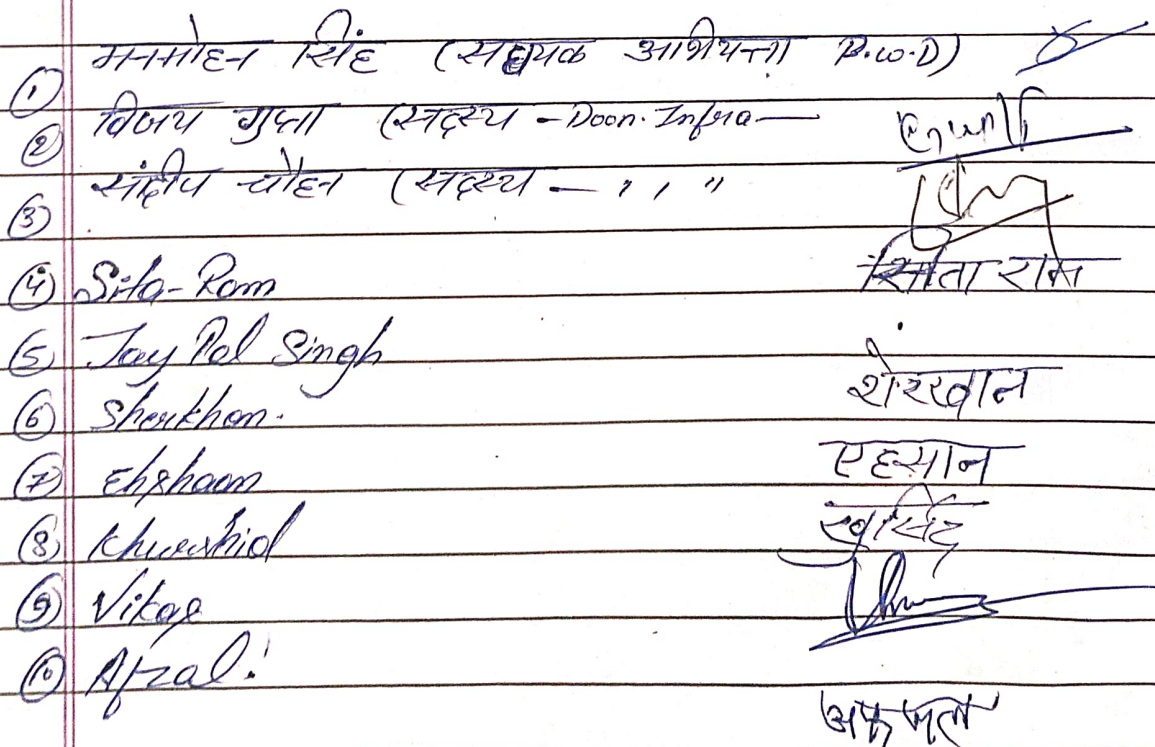 ① मनमोहन सिंह (सहायक अभियन्ता P.W.D)
② विजय गुप्ता (सदस्य - Doon. Infra —
③ संदीप चौहान (सदस्य — " " "
④ Sita-Ram सिता राम
⑤ Jay Pal Singh
⑥ Sherkhan. शेरखान
⑦ Ehshaan एहसान
⑧ Khurshid खुर्सिद
⑨ Vikas
⑩ Afzal. अफजल